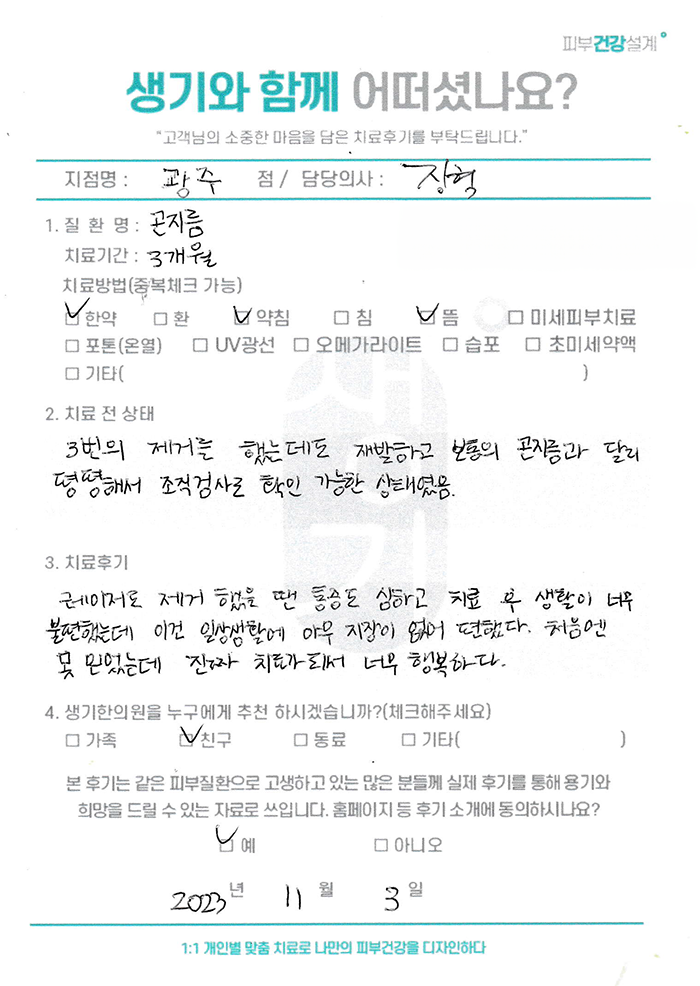 피부건강설계
생기와 함께 어떠셨나요?
“고객님의 소중한 마음을 담은 치료후기를 부탁드립니다.”
지점명 : 광주 점 / 담당의사 : 장혁
1. 질 환 명 : 곤지름
치료기간 : 3개월
치료방법(중복체크 가능)
☑ 한약 □ 환 ☑ 약침 □ 침 ☑ 뜸 □ 미세피부치료
□ 포톤(온열) □ UV광선 □ 오메가라이트 □ 습포 □ 초미세약액
□ 기타( )
2. 치료 전 상태
3번의 제거를 했는데도 재발하고 보통의 곤지름과 달리
평평해서 조직검사로 확인 가능한 상태였음.
3. 치료후기
레이저로 제거 했을 땐 통증도 심하고 치료 후 생활이 너무
불편했는데 이건 일상생활에 아무 지장이 없어 편했다. 처음엔
못 믿었는데 진짜 치료가되서 너무 행복하다.
4. 생기한의원을 누구에게 추천 하시겠습니까?(체크해주세요)
□ 가족 ☑ 친구 □ 동료 □ 기타( )
본 후기는 같은 피부질환으로 고생하고 있는 많은 분들께 실제 후기를 통해 용기와
희망을 드릴 수 있는 자료로 쓰입니다. 홈페이지 등 후기 소개에 동의하시나요?
☑ 예 □ 아니오
2023년 11월 3일
1:1 개인별 맞춤 치료로 나만의 피부건강을 디자인하다
생기